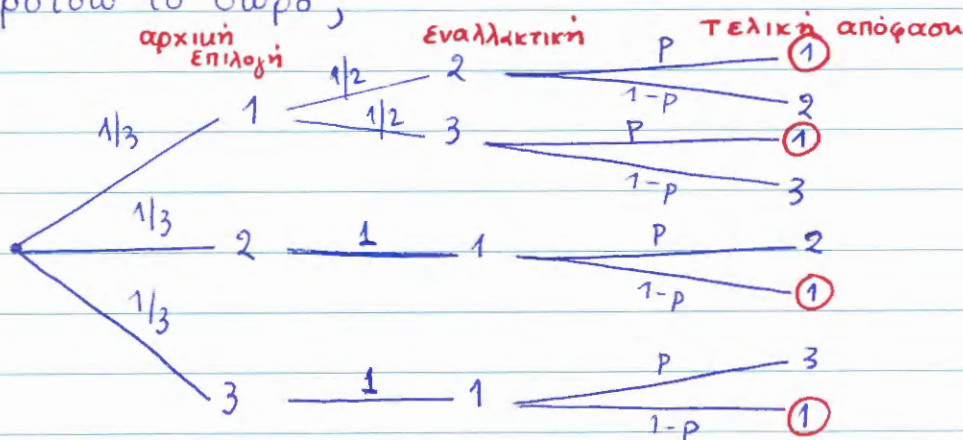 το δώρο ;
αρχική εναλλακτική τελική απόφαση
επιλογή
1/3 1 1/2 2 P 1
1-P 2
1/2 3 P 1
1-P 3
1/3 2 1 1 P 2
1-P 1
1/3 3 1 1 P 3
1-P 1